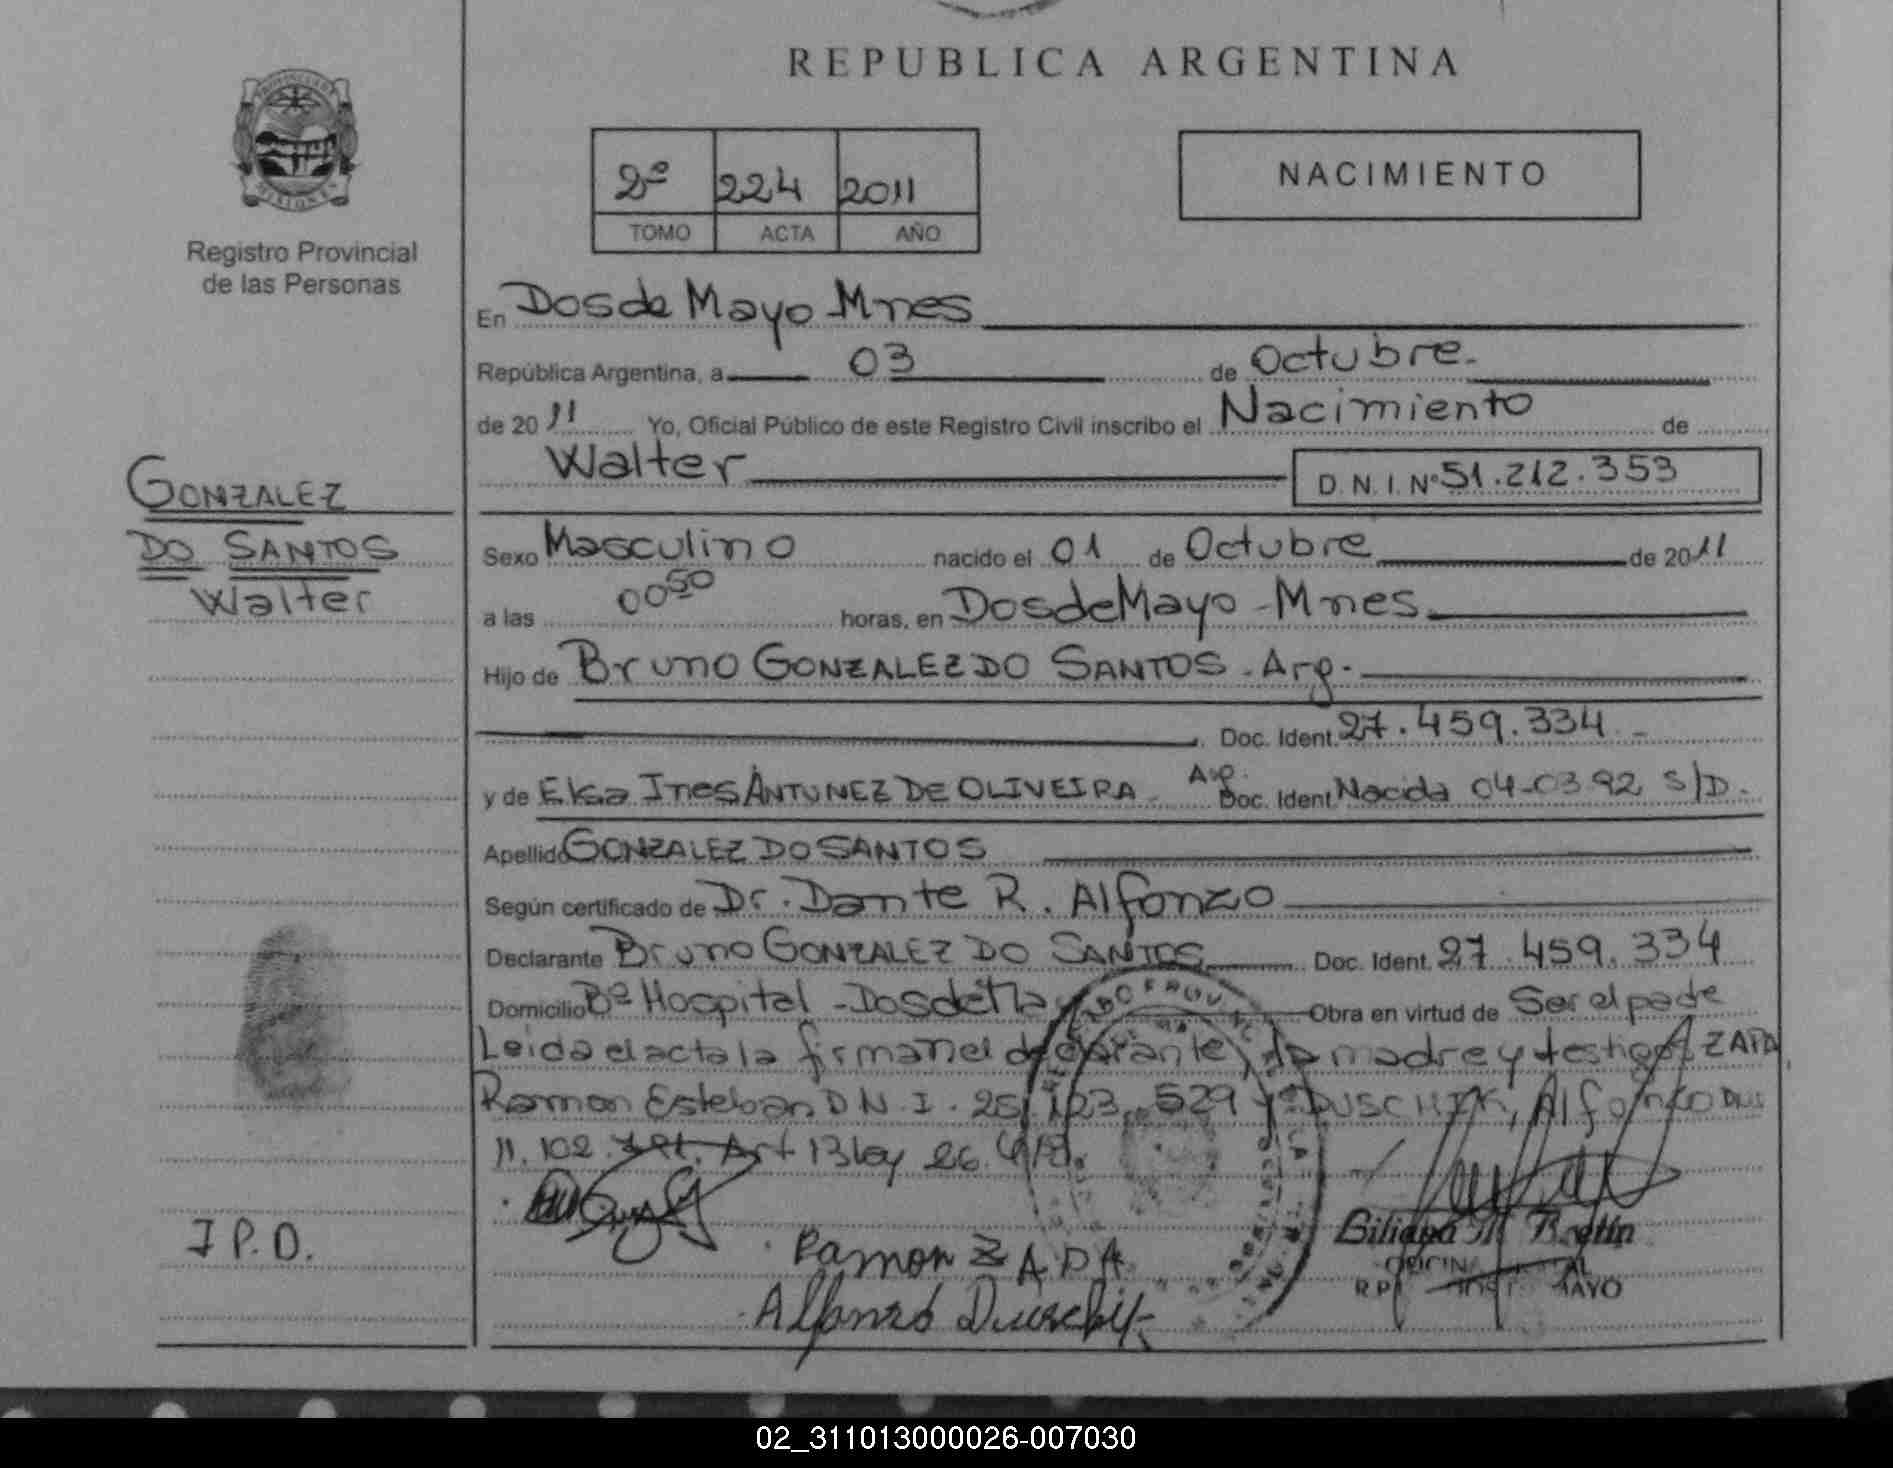 REPUBLICA ARGENTINA
2º 224 2011
TOMO ACTA AÑO
NACIMIENTO
MISIONES
Registro Provincial
de las Personas
GONZALEZ
DO SANTOS
Walter
I P.D.
En Dos de Mayo Mnes
República Argentina, a 03 de Octubre.
de 2011 Yo, Oficial Público de este Registro Civil inscribo el Nacimiento de
Walter D.N.I. Nº 51.212.353
Sexo Masculino nacido el 01 de Octubre de 2011
a las 00 50 horas, en Dos de Mayo - Mnes.
Hijo de Bruno GONZALEZ DO SANTOS . Arg.
Doc. Ident. 27.459.334 -
y de Elsa Ines ANTUNEZ DE OLIVEIRA - Arg. Doc. Ident Nacida 04-03-92 S/D.
Apellido GONZALEZ DO SANTOS
Según certificado de Dr. Dante R. Alfonzo
Declarante Bruno GONZALEZ DO SANTOS Doc. Ident. 27.459.334
Domicilio Bº Hospital - Dos de May Obra en virtud de Ser el padre
Leida el acta la firman el declarante, la madre y testigos ZAPA
Ramon Esteban D N.I. 25.123.529 y DUSCHIK, Alfonzo DNI
11.102. Art 13 ley 26.413.
Ramon ZAPA
Alfonzo Duschik
Liliana M.
OFICIAL
R.P. DOS DE MAYO
02_311013000026-007030